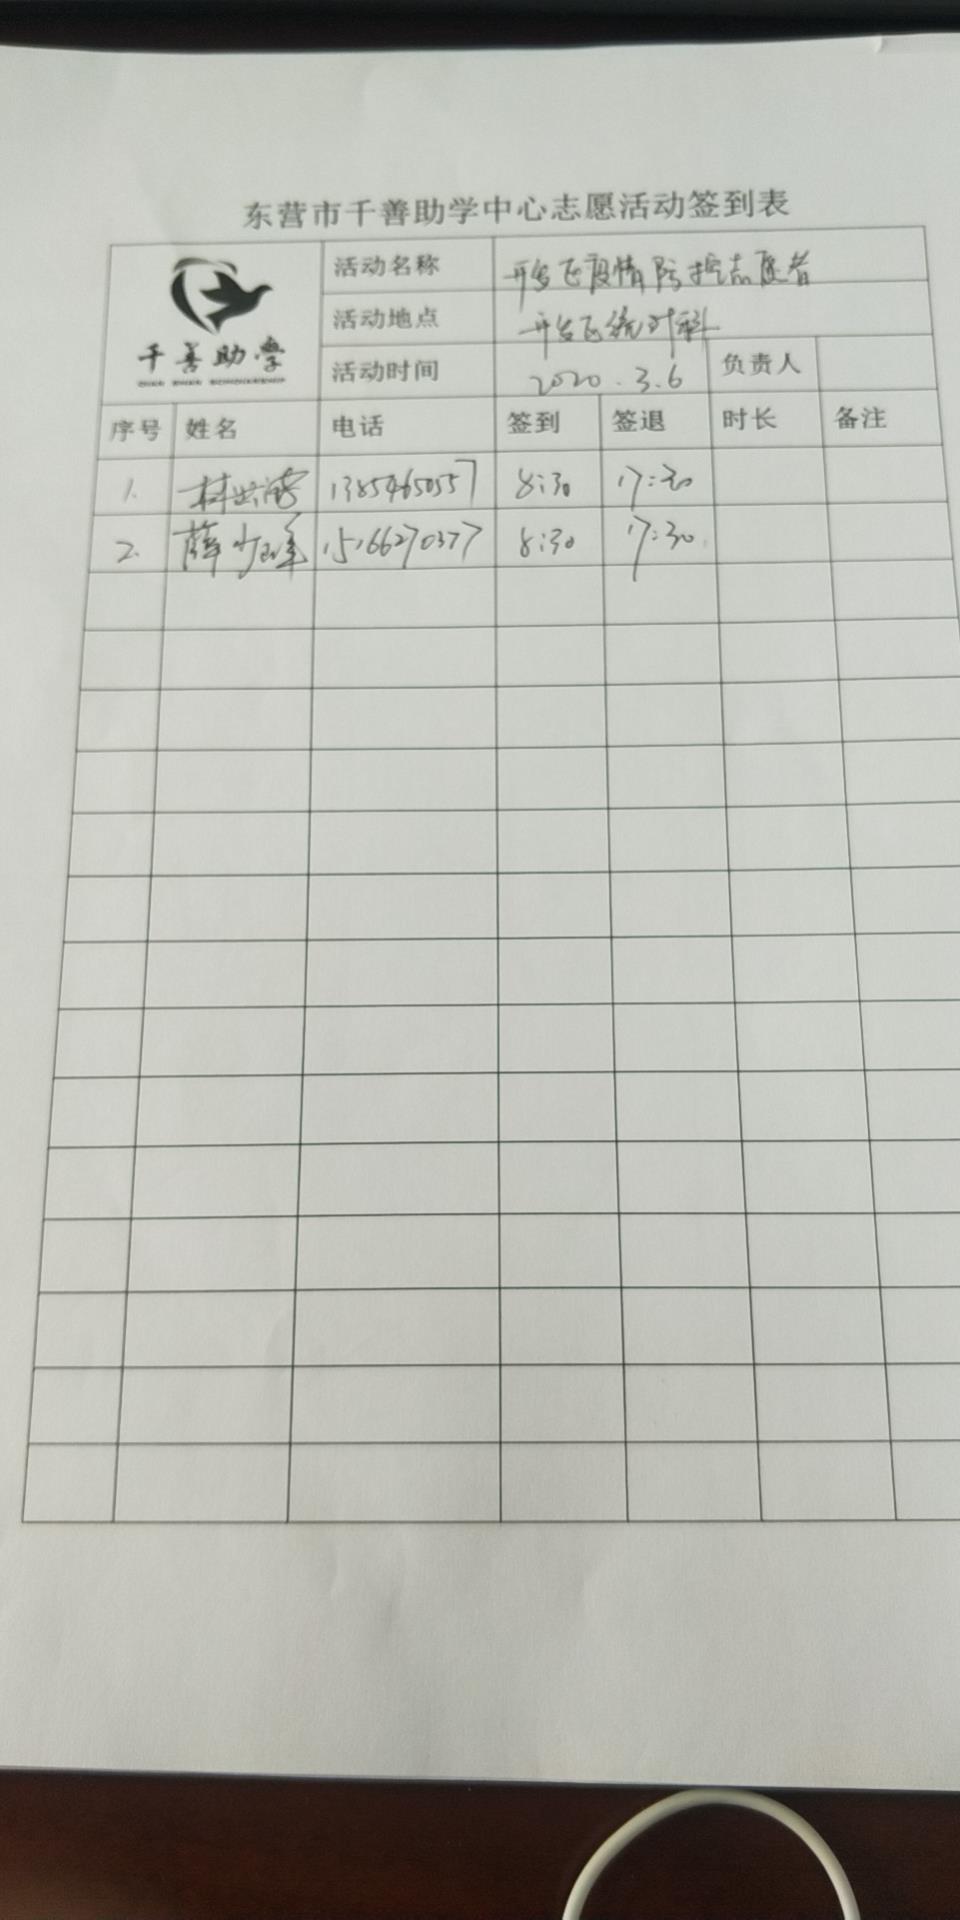 东营市千善助学中心志愿活动签到表
千善助学
活动名称 开发区疫情防控志愿者
活动地点 开发区统计科
活动时间 2020.3.6 负责人
序号 姓名 电话 签到 签退 时长 备注
1. 林 13854650557 8:30 17:30
2. 薛少峰 15166270377 8:30 17:30